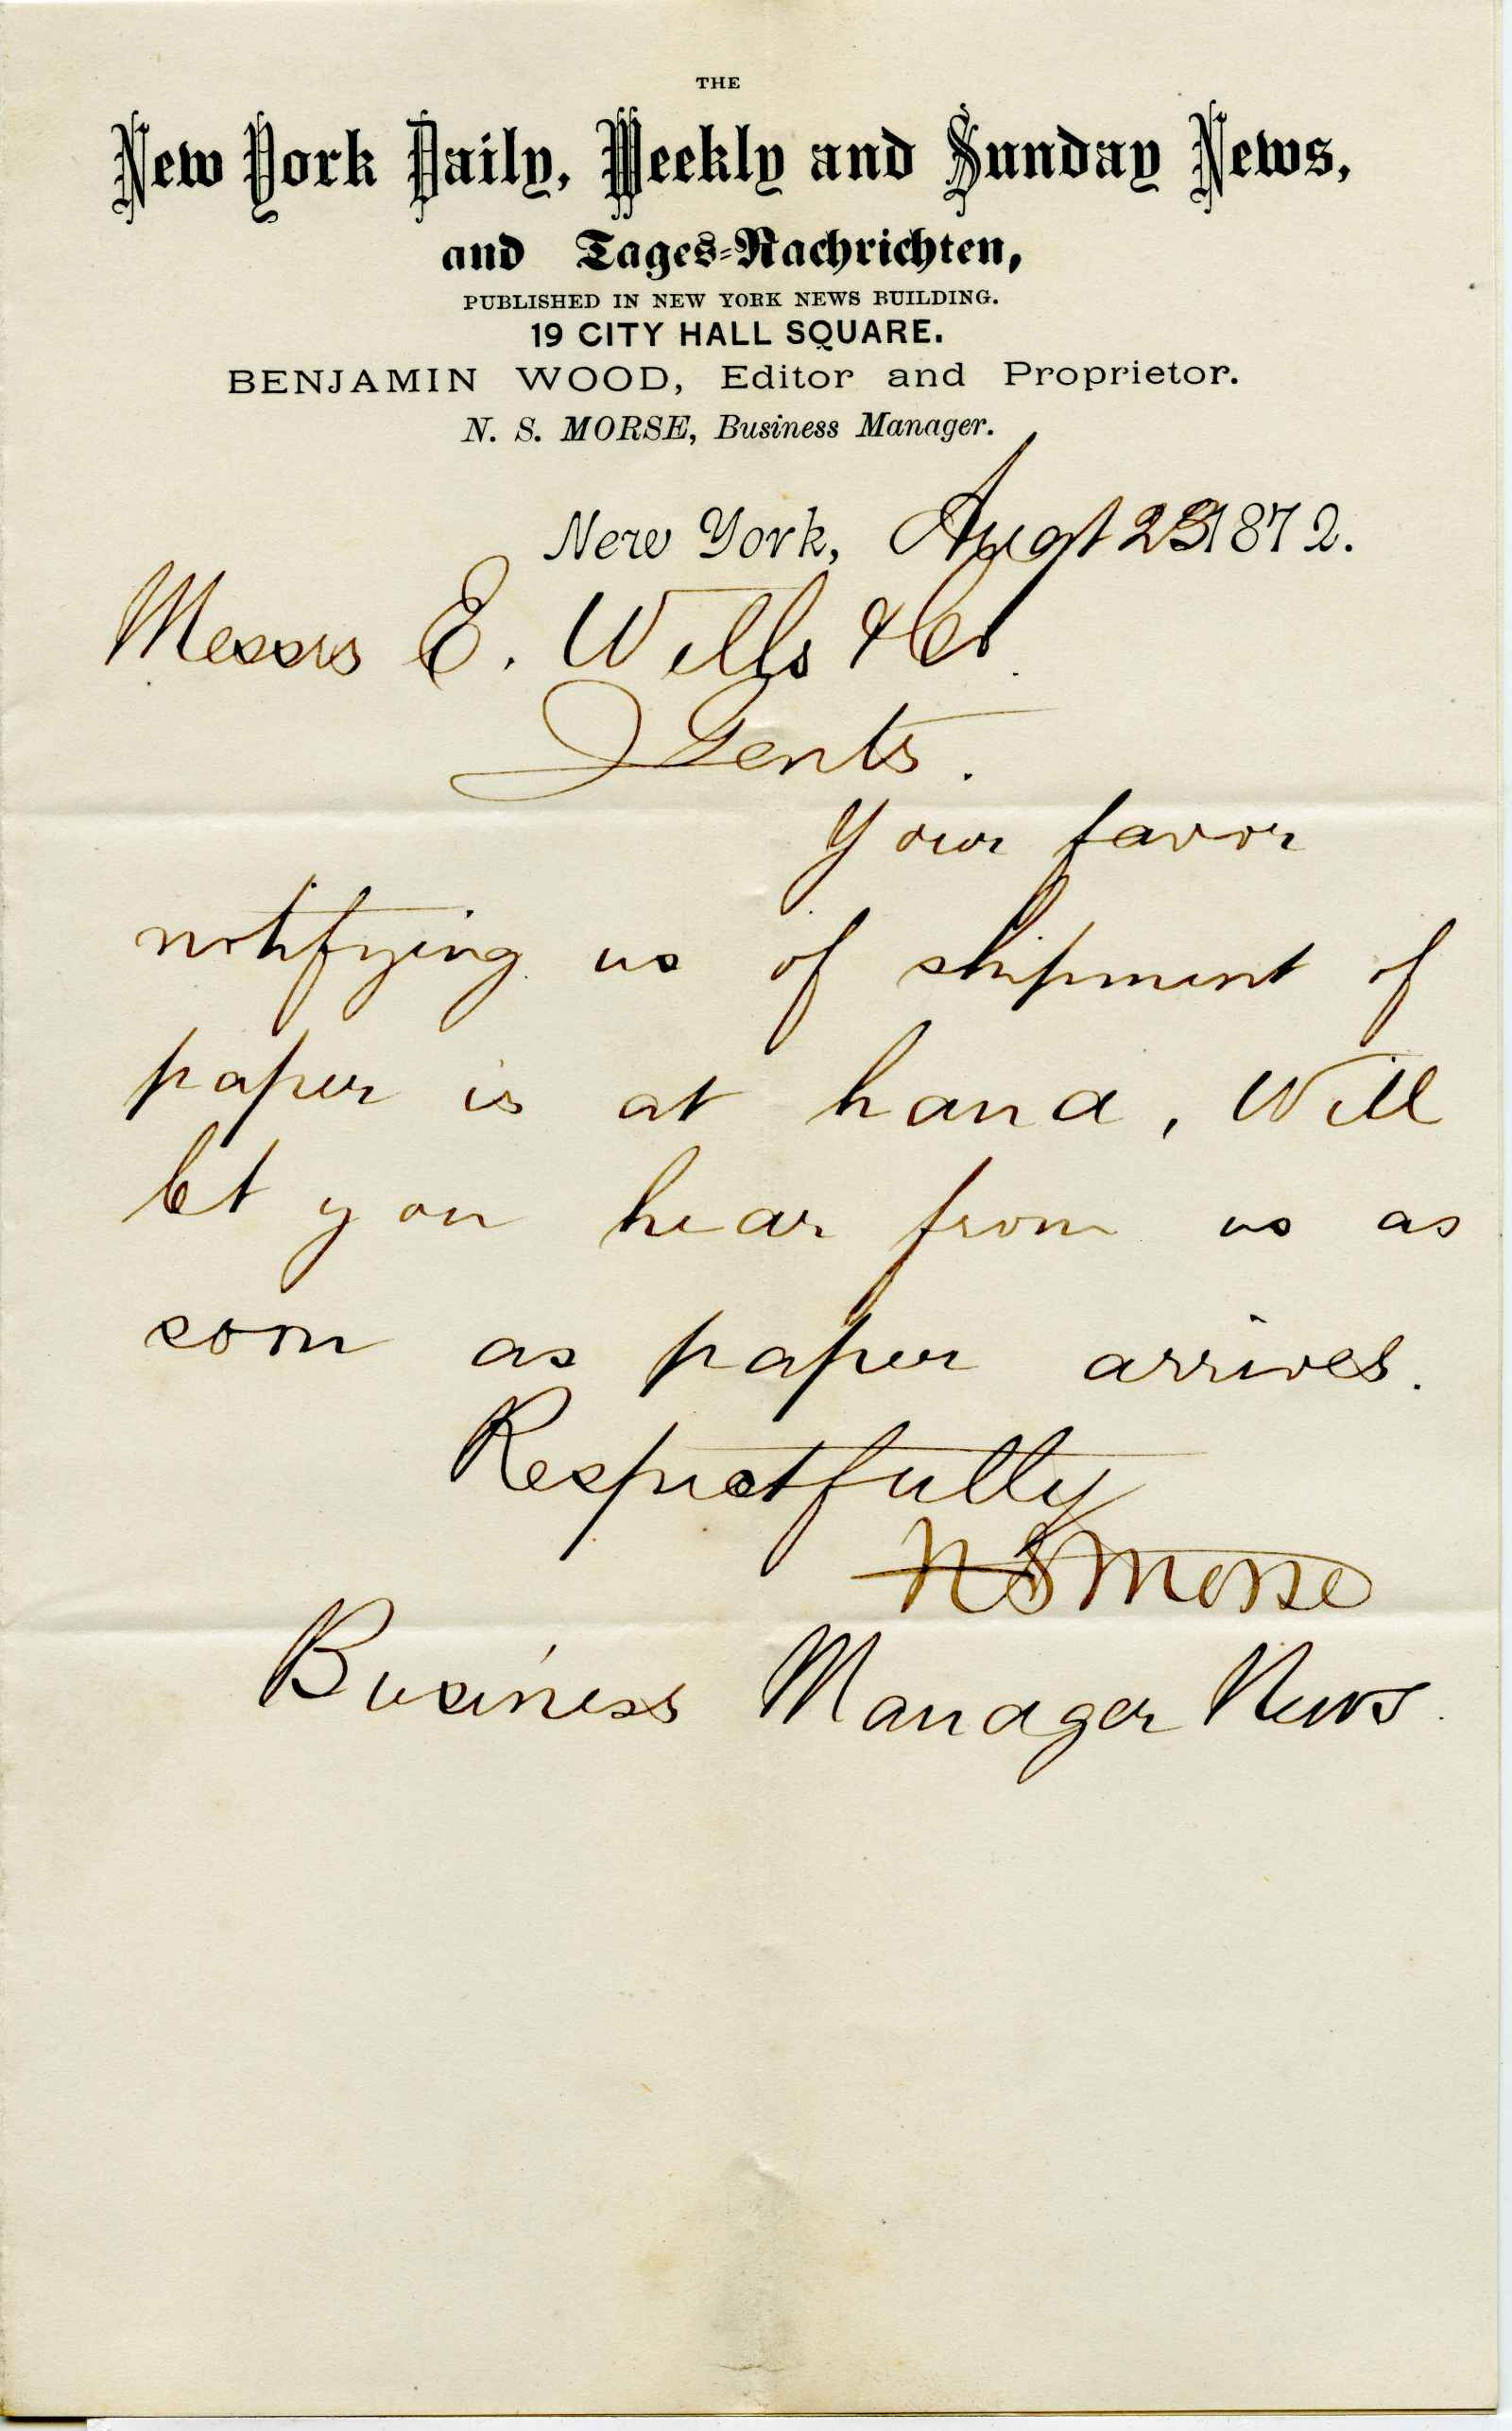 THE
New York Daily, Weekly and Sunday News,
and Tages-Nachrichten,
PUBLISHED IN NEW YORK NEWS BUILDING.
19 CITY HALL SQUARE.
BENJAMIN WOOD, Editor and Proprietor.
N. S. MORSE, Business Manager.
New York, Augst 1872.
Messrs E. Wells & Co.
Gents.
Your favor
notifying us of shipment of
paper is at hand, Will
let you hear from us as
soon as paper arrives.
Respectfully
N S Morse
Business Manager News.